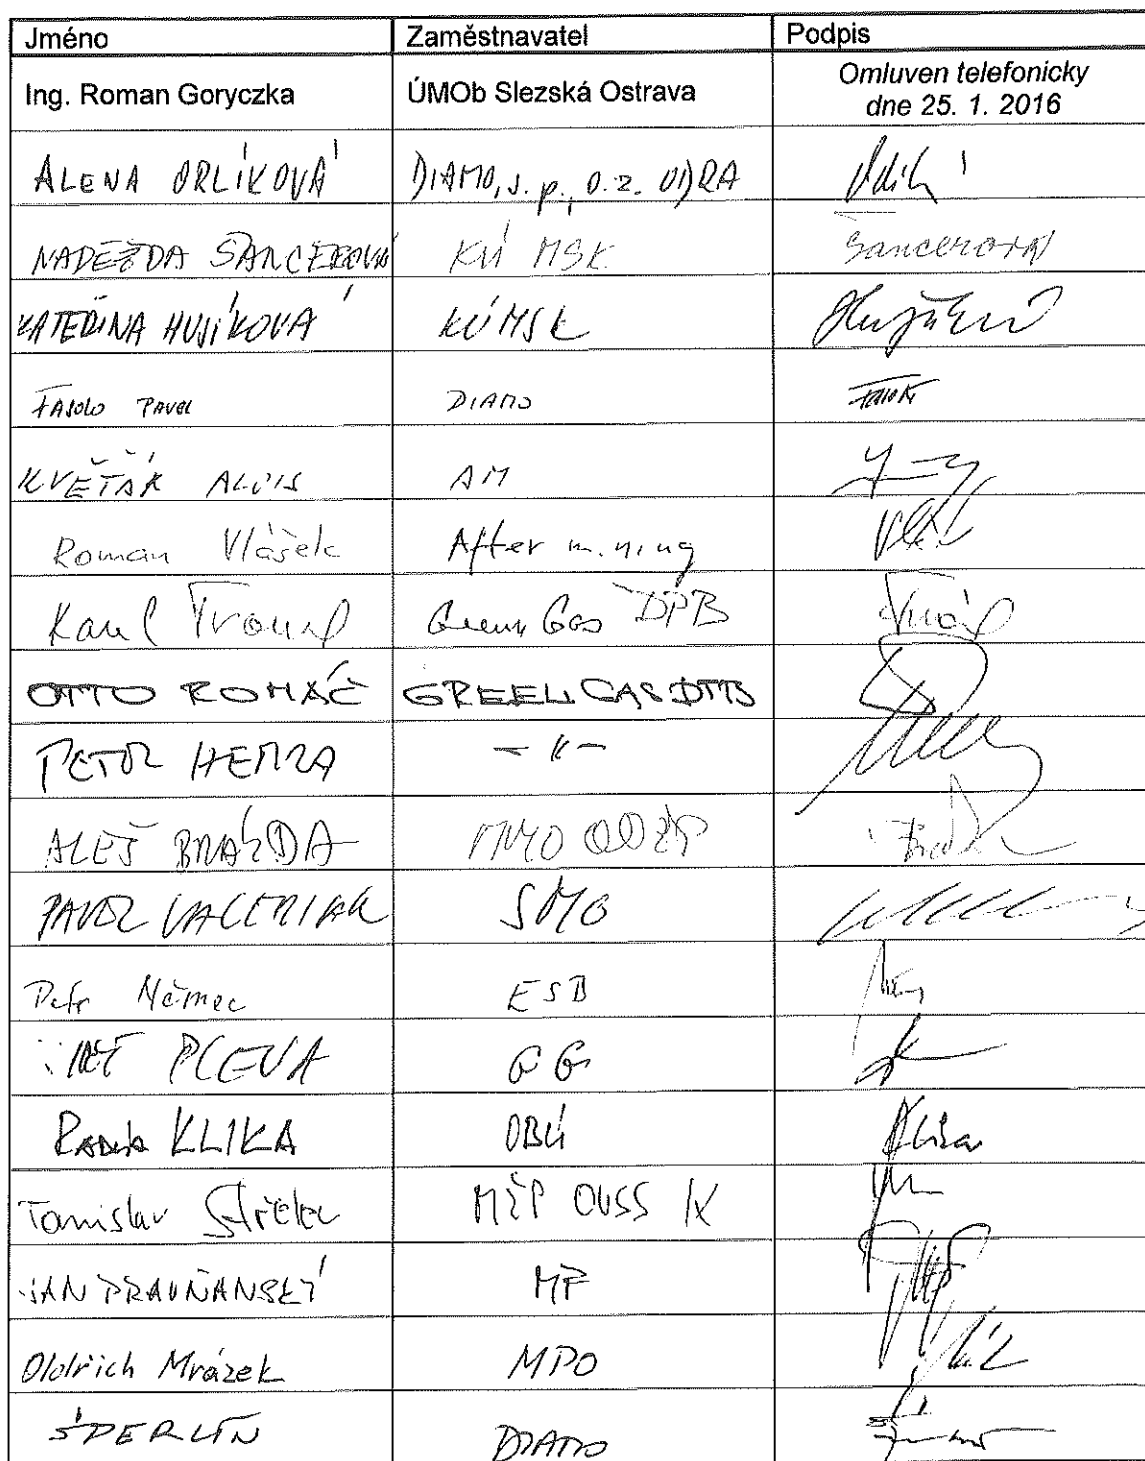 Jméno Zaměstnavatel Podpis
Ing. Roman Goryczka ÚMOb Slezská Ostrava Omluven telefonicky
dne 25. 1. 2016
ALENA ORLÍKOVÁ DIAMO, s. p., o. z. ODRA
NADĚŽDA ŠANCEROVÁ KÚ MSK Šancerová
KATEŘINA HUJÍKOVÁ KÚ MSK
FAJOLO PAVEL DIAMO
KVĚŤÁK ALOIS AM
Roman Vlášek After mining
Karel Green Gas DPB
OTTO ROMÁČ GREEN GAS DPB
PETR HEMZA - " -
ALEŠ BRÁZDA MMO OOŽP
PAVOL SMO
Petr Němec ESB
PLEVA GG
Radim KLIKA OBÚ Klika
Tomislav Střelec MŽP OVSS IX
JAN PRAVŇANSKÝ MF
Oldřich Mrázek MPO
ŠPERLÍN DIAMO